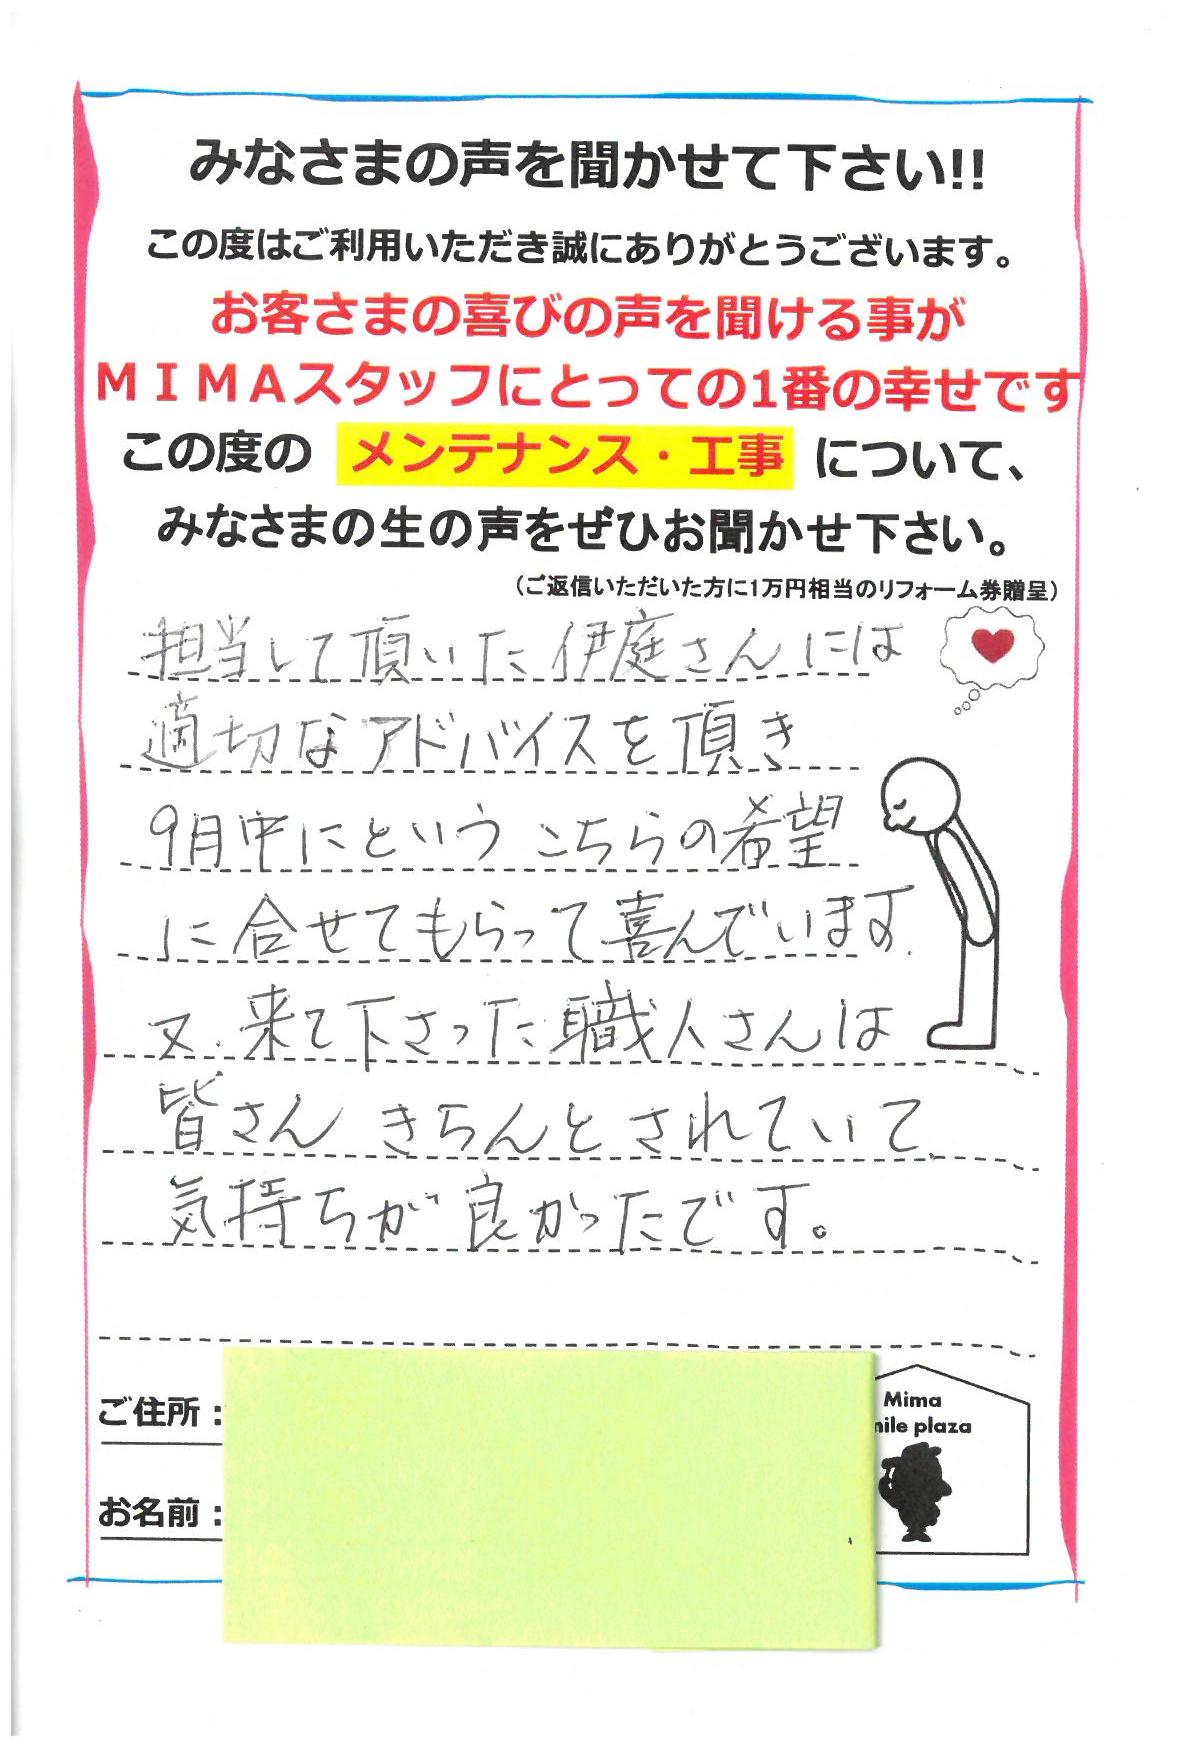 みなさまの声を聞かせて下さい!!
この度はご利用いただき誠にありがとうございます。
お客さまの喜びの声を聞ける事が
ＭＩＭＡスタッフにとっての1番の幸せです
この度の メンテナンス・工事 について、
みなさまの生の声をぜひお聞かせ下さい。
（ご返信いただいた方に1万円相当のリフォーム券贈呈）
担当して頂いた伊庭さんには
適切なアドバイスを頂き
9月中にという こちらの希望
に合せてもらって喜んでいます.
又、来て下さった職人さんは
皆さん きちんとされていて、
気持ちが良かったです。
ご住所：
お名前：
Mima
mile plaza